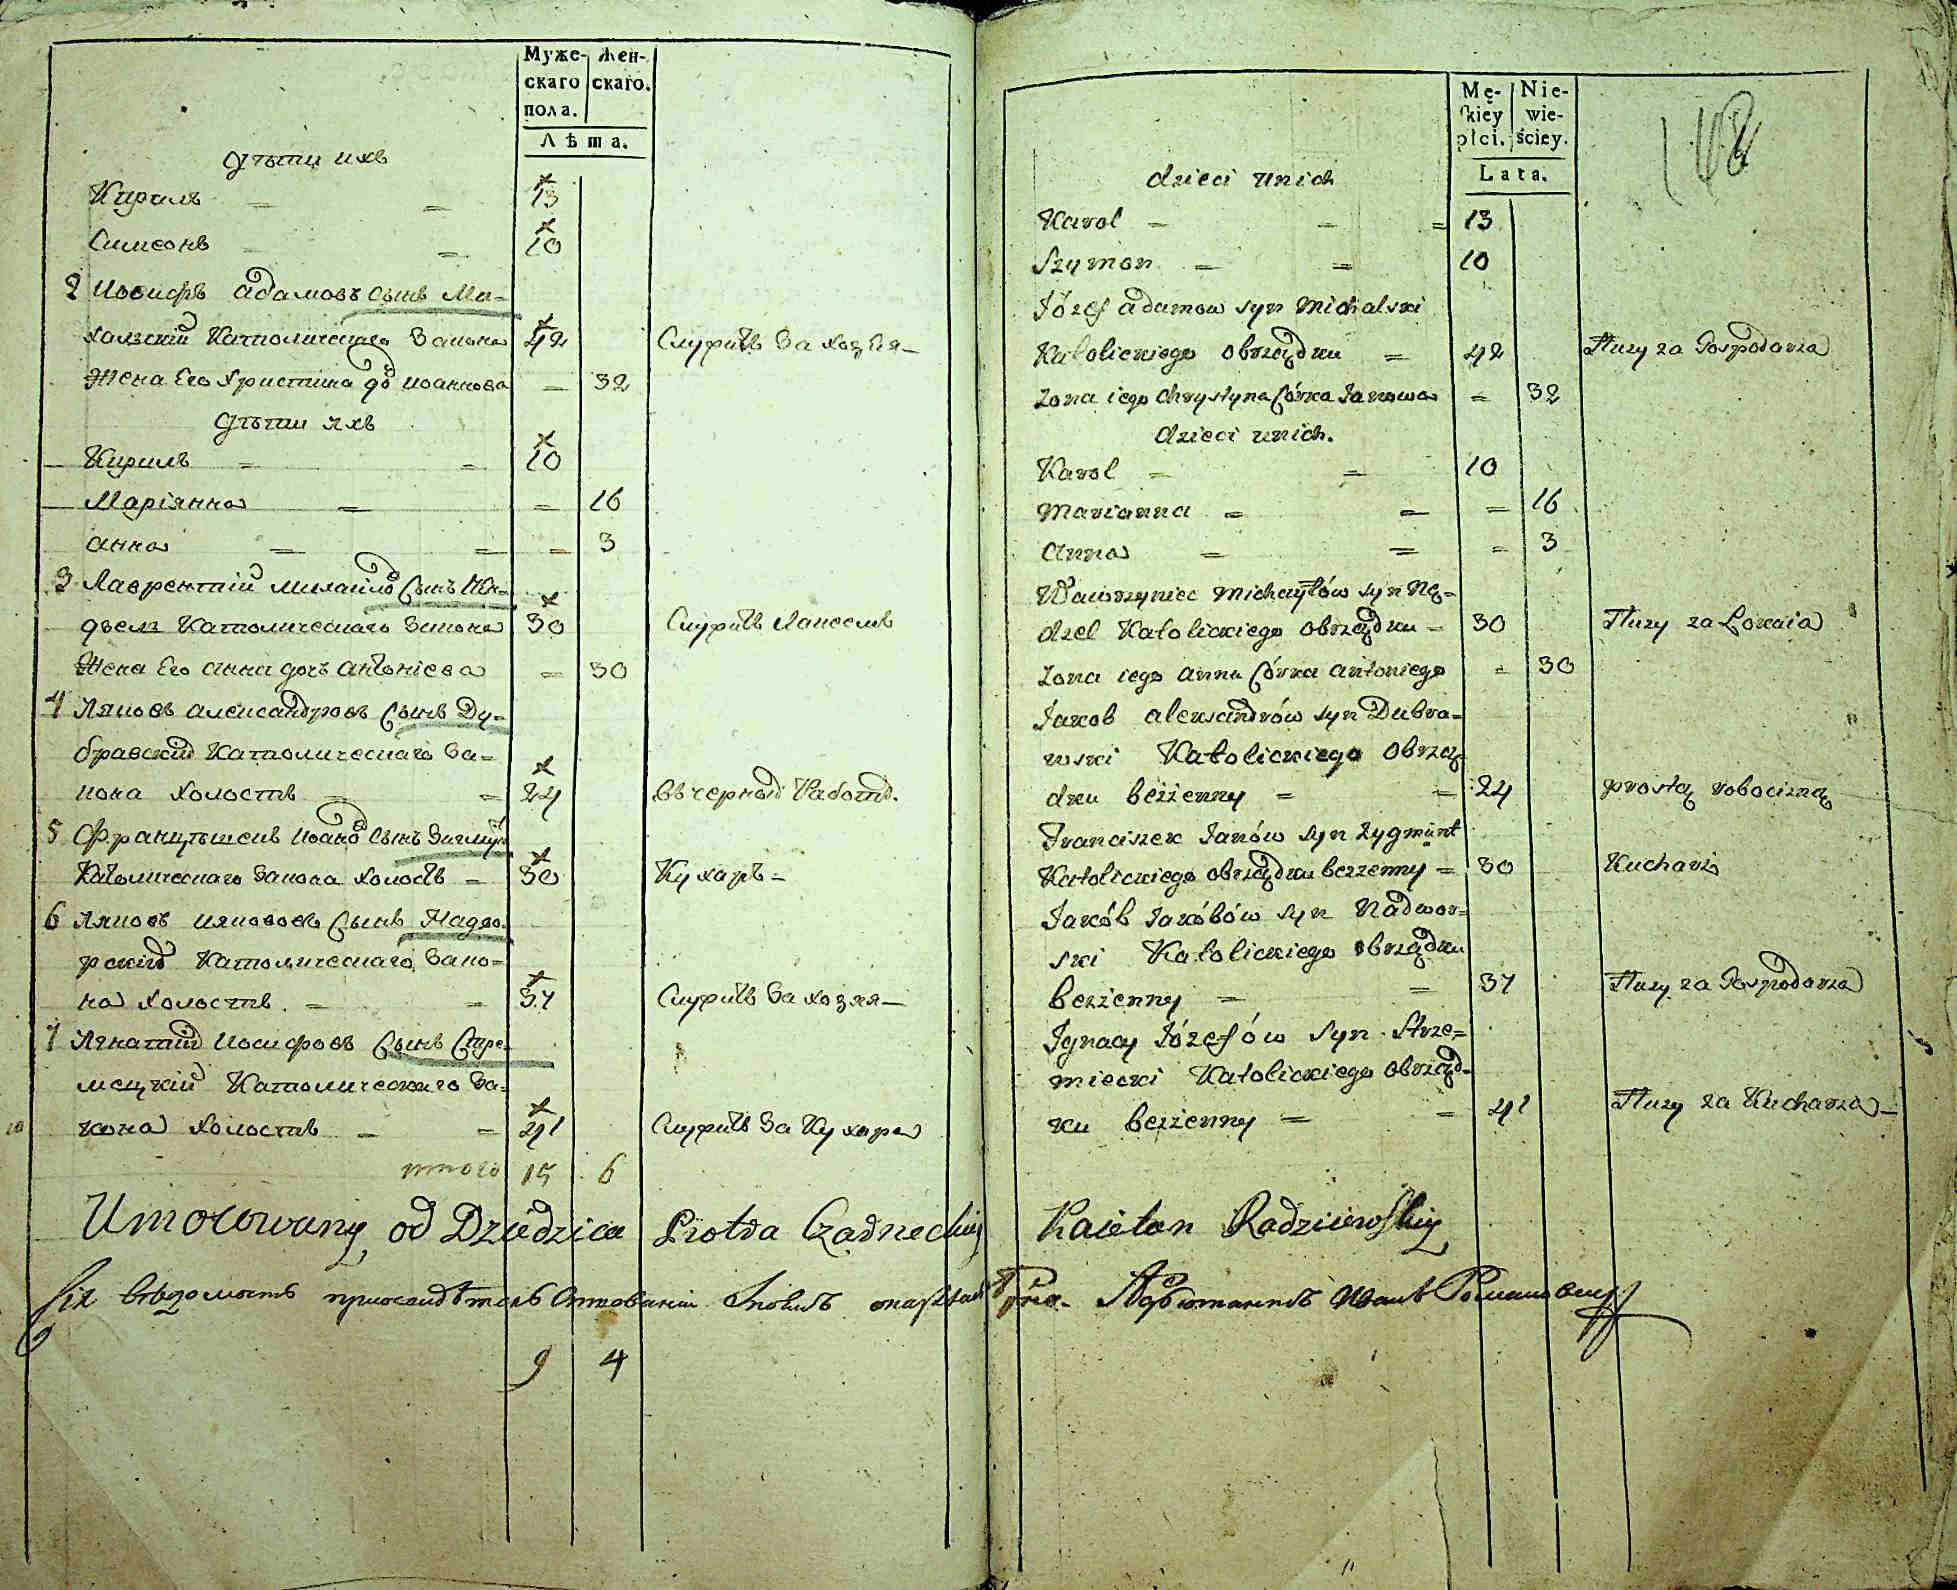 Муже-
скаго
пола.
Жен-
скаго.
Лѣта.
дѣти ихъ
Кирилъ = = 13
Симеонъ = 10
2 Иосифъ Адамовъ сынъ Ми-
халский Католическаго Закона 42 Служитъ За хозяи-
Жена Его Христина дочь Иоаннова = 32
дѣти ихъ
Кирилъ = = 10
Маріянна = = 16
Анна = = = 3
3 Лаврентий Михайловъ сынъ Нен-
дзель Католическаго Закона 30 Служитъ Лакеемъ
Жена Его Анна дочь Антоніева = 30
4 Яковъ Александровъ сынъ Ду-
бравский Католическаго За-
кона Холостъ = = 24 въ черной Работѣ.
5 Францишекъ Иоановъ сынъ Зигмунтъ
Католическаго Закона Холостъ = 30 Кухаръ =
6 Яковъ Якововъ сынъ Надво-
рский Католическаго Зако-
на Холостъ. = = 37 Служитъ За хозяи-
7 Игнатий Иосифовъ сынъ Стре-
мецкий Католическаго За-
кона Холостъ = = 41 Служитъ За Кухара
итого 15 6
Umocowany od Dziedzica Piotra Czarneckiy
9 4
Mę-
skiey
płci.
Nie-
wie-
ściey.
Lata.
148
dzieci unich
Karol = = = 13
Szymon = = 10
Józef Adamow syn Michalski
Katolickiego obrządku = 42 Służy za Gospodarza
Zona iego Chrystyna Córka Janowa = 32
dzieci unich.
Karol = = 10
Marianna = = = 16
Anna = = = 3
Wawrzyniec Michayłów syn Nę=
dzel Katolickiego obrządku = 30 Służy za Lokaia
Zona iego Anna Córka Antoniego = 30
Jakob Alexandrów syn Dubra=
wski Katolickiego Obrzą=
dku beżżenny = = 24 prostą robocizną
Franciszek Janów syn Zygmunt
Katolickiego obrządku bezżenny = 30 Kucharz
Jakób Jakóbów syn Nadwor=
ski Katolickiego obrządku
beżżenny = = 37 Służy za Gospodarza
Ignacy Józefów syn Strze=
miecki Katolickiego obrząd=
ku beżżenny = = 41 Służy za Kucharza =
Kaietan Radziiewskiy